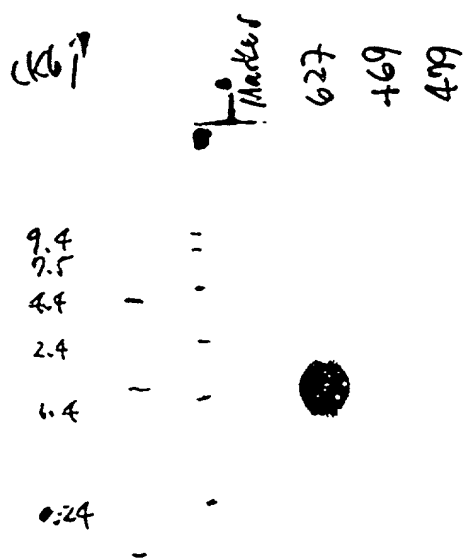 (Kb)
Marker
627
+69
479
9.4
7.5
4.4
2.4
1.4
0.24